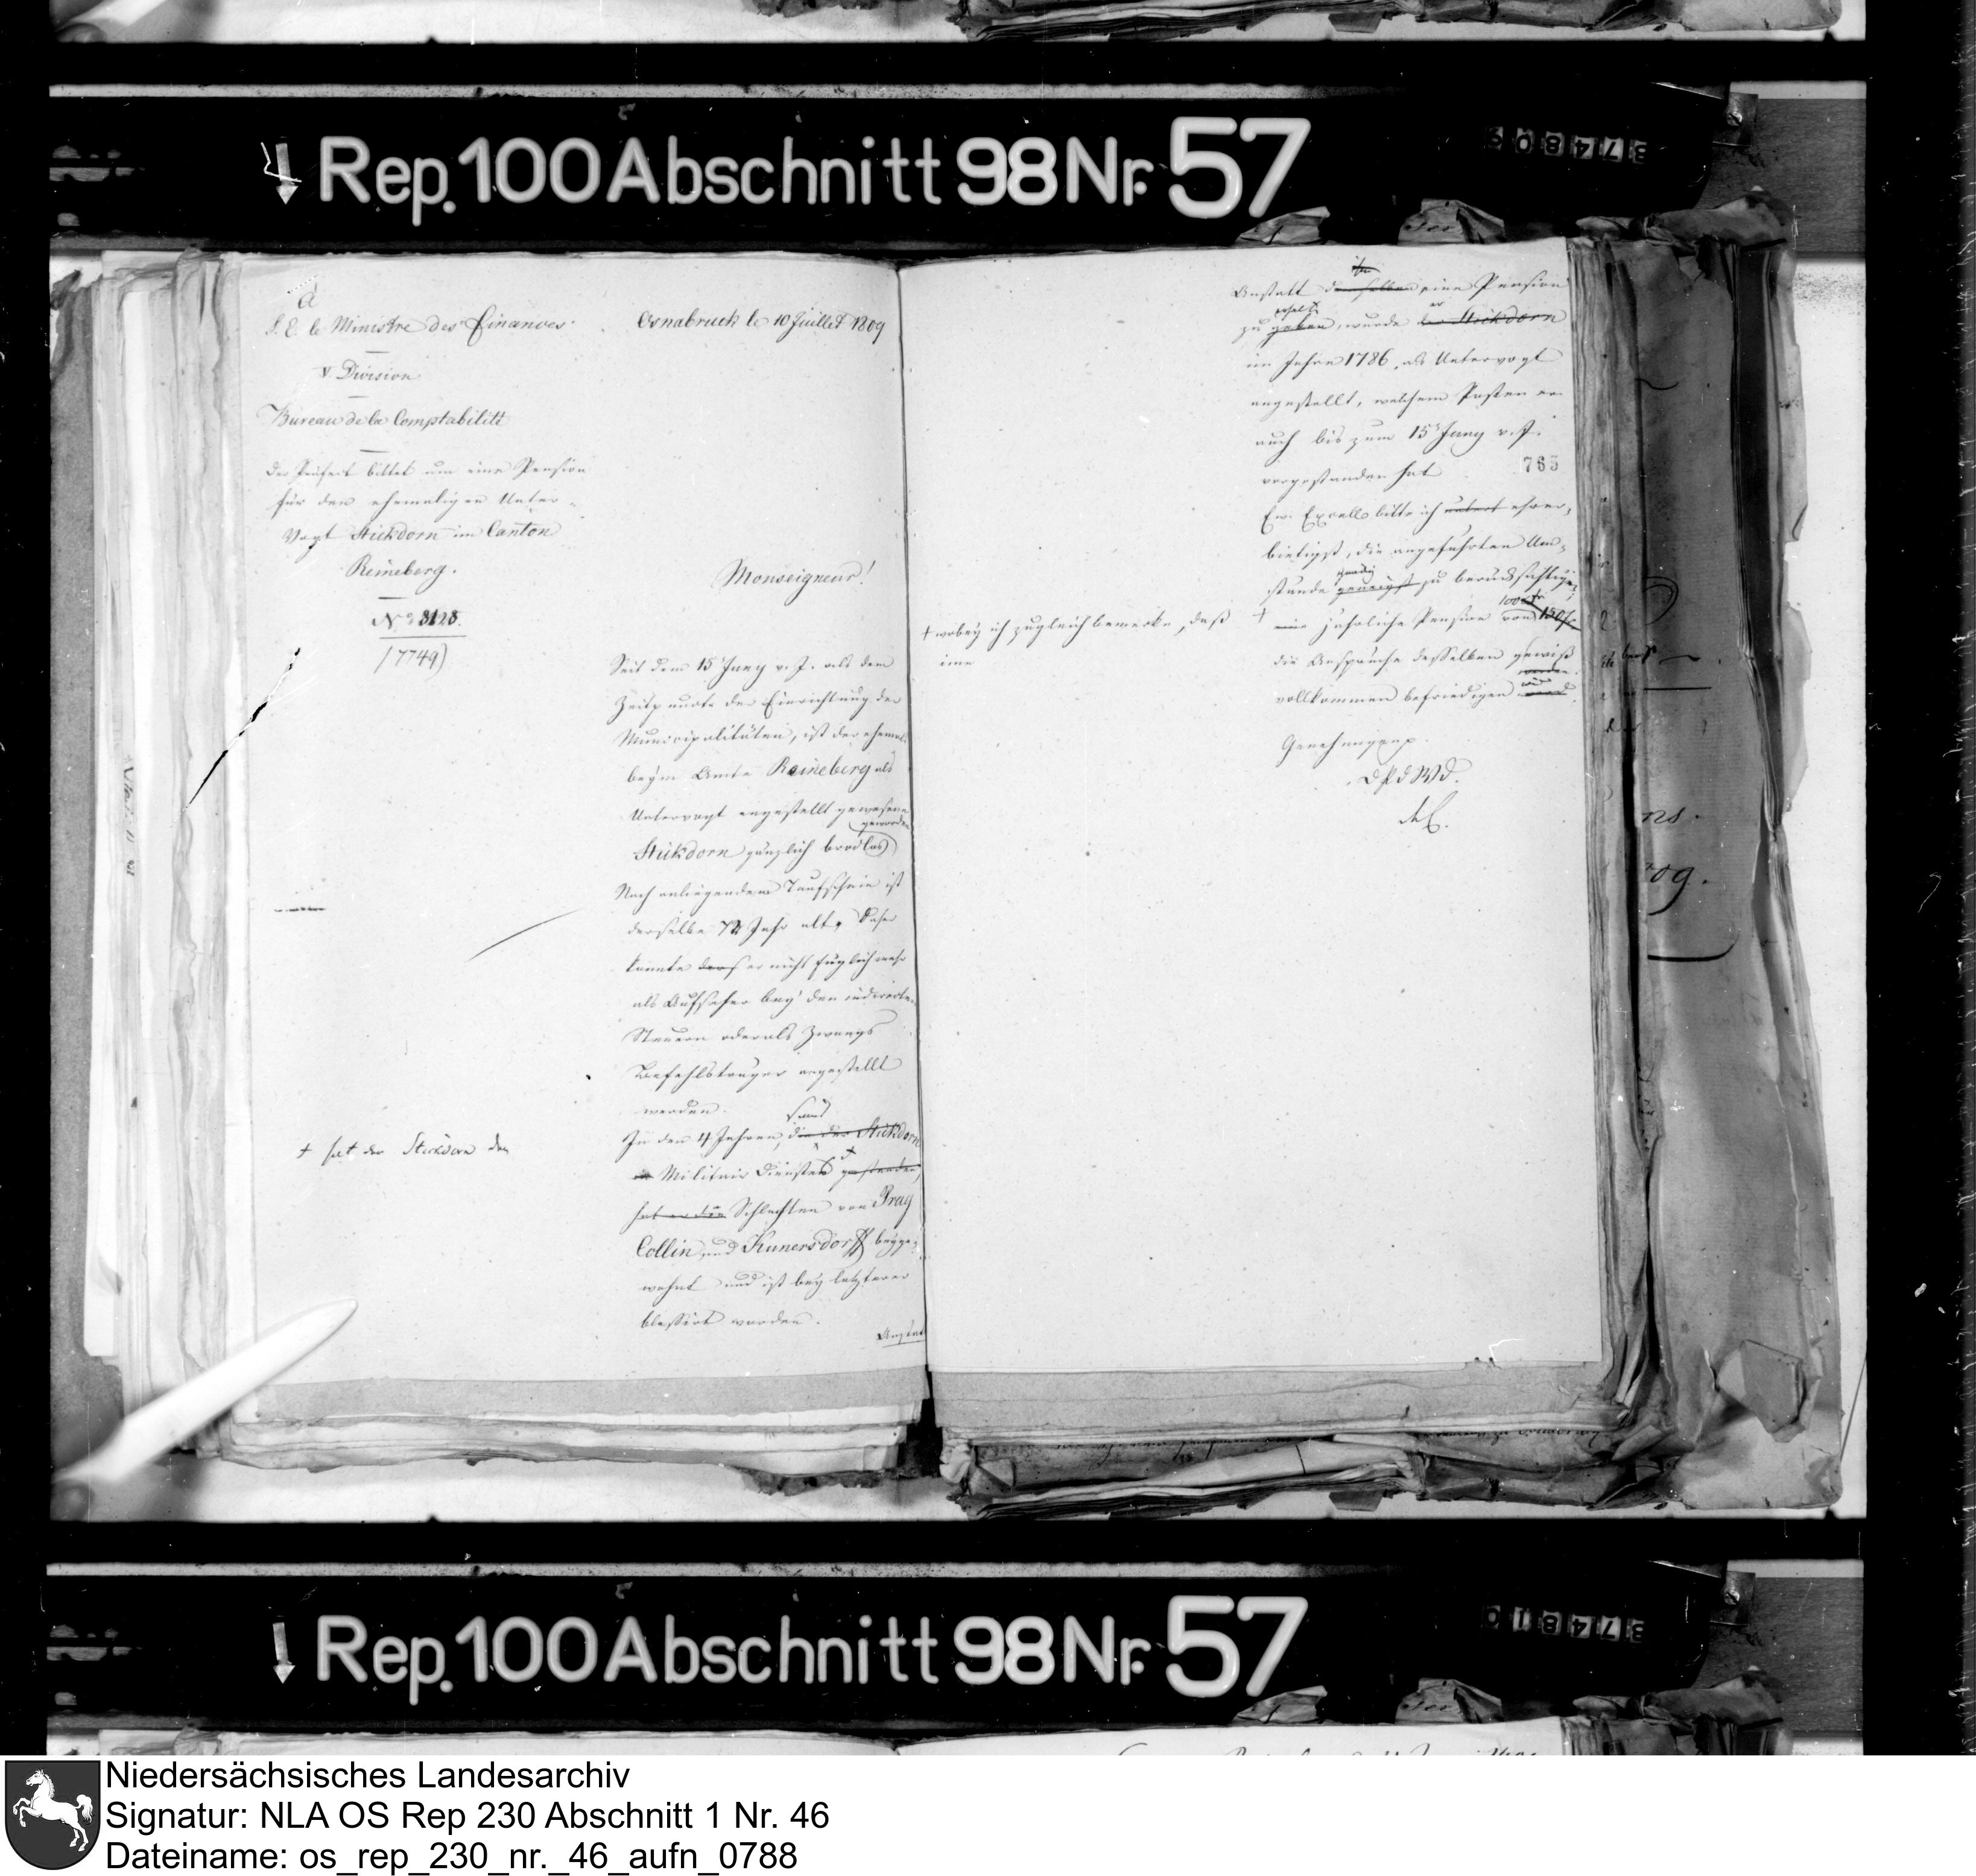 Rep. 100 Abschnitt 98 Nr. 57
a
S. E. le Ministre des Finances.
V. Division
Bureau de la Comptabilité
Der Präfect bittet um eine Pension
für den ehemaligen Unter-
Vogt Stückdorn im Canton
Reineberg.
No 3128.
(7749)
Osnabruck le 10 Juillet 1809
Monseigneur!
Seit dem 15 Juny v. J. als dem
Zeitpunckte der Einrichtung der
Municipalitäten, ist der ehemals
beym Amte Reineberg als
Untervogt angestellt gewesene
Stückdorn gänzlich brodlos geworden
Nach anliegendem Taufschein ist
derselbe 72 Jahr alt, Daher
konnte er nicht füglich mehr
als Aufseher bey den indirecten
Steuern oder als Zwangs
Befehlsträger angestellt
werden.
In den 4 Jahren, die der Stückdorn
Militair Diensten gestanden,
hat er die Schlachten von Prag
Collin und Kunersdorff beyge-
wohnt und ist bey letzterer
blessirt worden.
Anstatt
+ hat der Stückdorn den
Anstatt demselben eine Pension
zu geben, wurde der Stückdorn
im Jahre 1786, als Untervogt
angestellt, welchem Posten er
auch bis zum 15 Juny v. J.
vorgestanden hat
763
Ew. Excell. bitte ich ehrer-
bietigst, die angeführten Um-
stände gnädig zu berücksichtigen,
+ eine jährliche Pension von 150 fr.
die Ansprüche desselben gewiß
vollkommen befriedigen wird.
+ wobey ich zugleich bemerke, daß
eine
Genehmigen p.
D P d W D.
Rep. 100 Abschnitt 98 Nr. 57
Niedersächsisches Landesarchiv
Signatur: NLA OS Rep 230 Abschnitt 1 Nr. 46
Dateiname: os_rep_230_nr._46_aufn_0788